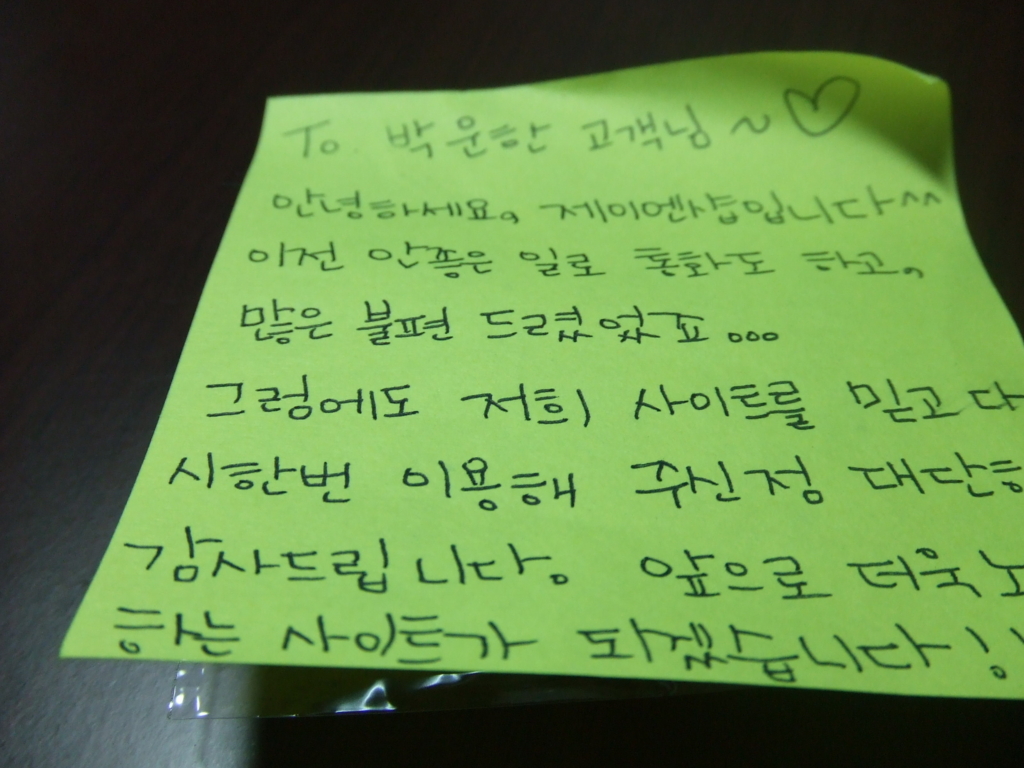 To. 박운한 고객님 ~ ♡
안녕하세요, 제이엔샵입니다^^
이전 안좋은 일로 통화도 하고,
많은 불편 드렸었죠...
그럼에도 저희 사이트를 믿고 다
시한번 이용해 주신점 대단히
감사드립니다. 앞으로 더욱 노
하는 사이트가 되겠습니다!!